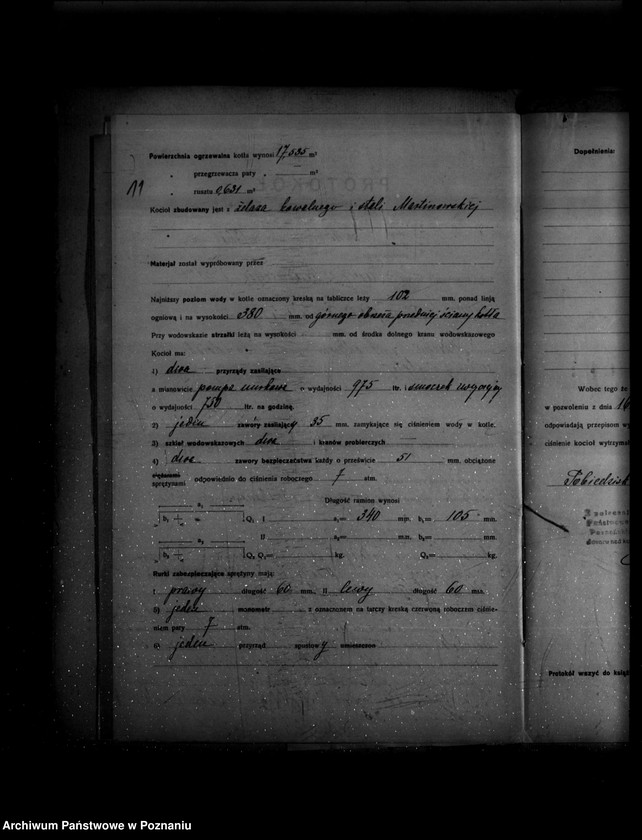 Powierzchnia ogrzewalna kotła wynosi 17,535 m²
„ przegrzewacza pary — m²
19 „ rusztu 0,631 m²
Kocioł zbudowany jest z żelaza kowalnego i stali Martinowskiej
Materjał został wypróbowany przez —
Najniższy poziom wody w kotle oznaczony kreską na tabliczce leży 102 mm. ponad linją
ogniową i na wysokości 380 mm. od górnego obrzeża przedniej ściany kotła
Przy wodowskazie strzałki leżą na wysokości mm. od środka dolnego kranu wodowskazowego
Kocioł ma:
1) dwa przyrządy zasilające
a mianowicie pompa o wydajności 975 ltr. i smoczek
o wydajności 750 ltr. na godzinę.
2) jeden zawory zasilający 35 mm. zamykające się ciśnieniem wody w kotle.
3) szkieł wodowskazowych dwa i kranów probierczych —
4) dwa zawory bezpieczeństwa każdy o prześwicie 51 mm. obciążone
ciężarami
sprężynami odpowiednio do ciśnienia roboczego 7 atm.
Długość ramion wynosi
a₁
b₁ Q₁ I a₁= 340 mm. b₁= 105 mm.
II a₂= — mm. b₂= — mm.
a₂
b₂ Q₂ Q₁= kg. Q₂= kg.
Rurki zabezpieczające sprężyny mają:
I prawy długość 60 mm. II lewy długość 60 mm.
5) jeden manometr z oznaczeniem na tarczy kreską czerwoną roboczem ciśnie-
niem pary 7 atm.
6) jeden przyrząd spustowy umieszczono
Dopełnienia:
Wobec tego że
w pozwoleniu z dnia 16
odpowiadają przepisom
ciśnienie kocioł wytrzymał
Protokół wszyć do księgi
Archiwum Państwowe w Poznaniu